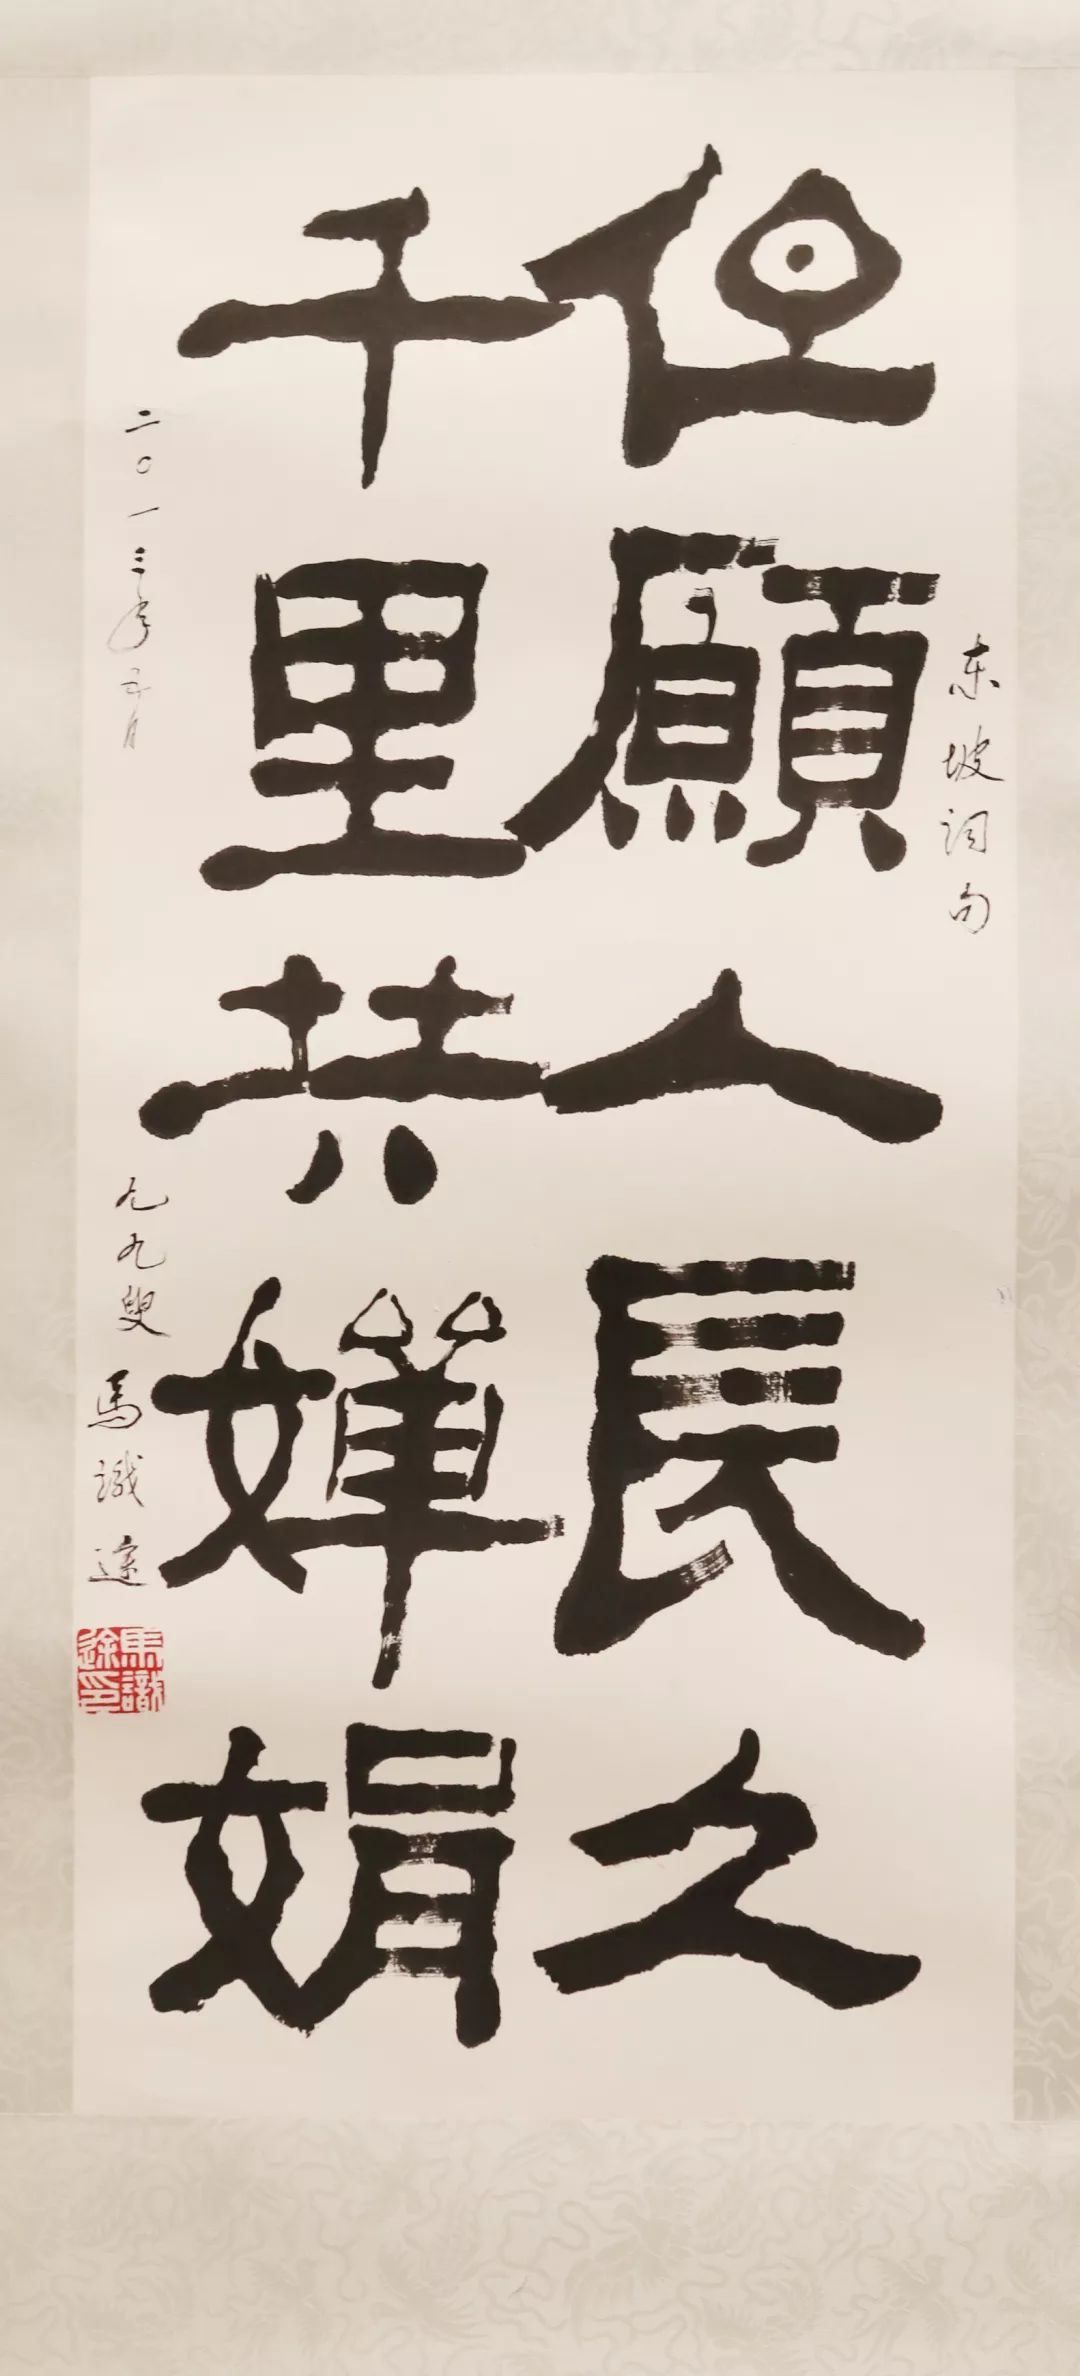 东坡词句
但願人長久
千里共嬋娟
二〇一三年 月
九九叟 馬識途
馬識途印